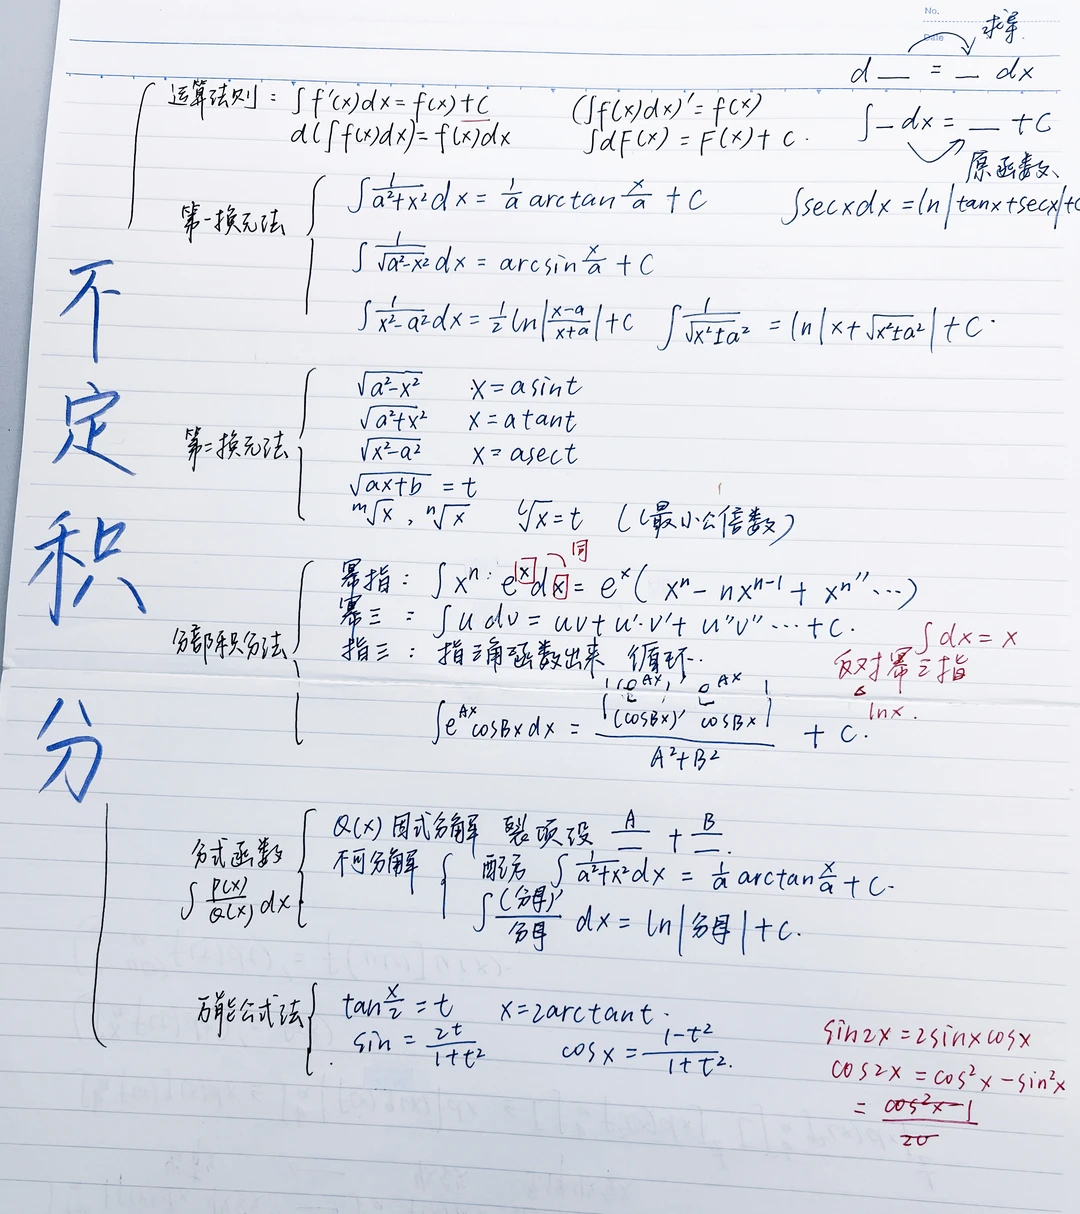 No.
Date
求导
d __ = __ dx
运算法则: ∫f'(x)dx=f(x)+C (∫f(x)dx)'=f(x)
d(∫f(x)dx)=f(x)dx ∫dF(x)=F(x)+C.
∫__dx=__+C
原函数
第一换元法
∫1/(a²+x²)dx=1/a arctan x/a +C
∫secxdx=ln|tanx+secx|+C
∫1/√(a²-x²)dx=arcsin x/a +C
∫1/(x²-a²)dx=1/2 ln|(x-a)/(x+a)|+C ∫1/√(x²±a²) =ln|x+√(x²±a²)|+C.
不定积分
第二换元法
√(a²-x²) x=asint
√(a²+x²) x=atant
√(x²-a²) x=asect
√(ax+b)=t
ᵐ√x, ⁿ√x ˡ√x=t (l最小公倍数)
分部积分法
同
幂指: ∫xⁿ·eˣdx=eˣ(xⁿ-nxⁿ⁻¹+xⁿ''…)
幂三: ∫udv=uv+u'·v'+u''v''…+C.
指三: 指三角函数出来 循环..
∫dx=x
反对幂三指
lnx.
∫e^(Ax)cosBxdx = |(e^(Ax))' e^(Ax)|
|(cosBx)' cosBx|
A²+B²
+C.
分式函数
∫P(x)/Q(x)dx
Q(x)因式分解 裂项设 A/__ + B/__.
不可分解
配方 ∫1/(a²+x²)dx=1/a arctan x/a +C.
∫(分母)'/分母 dx=ln|分母|+C.
万能公式法
tan x/2=t x=2arctant.
sin=2t/(1+t²) cosx=(1-t²)/(1+t²).
sin2x=2sinxcosx
cos2x=cos²x-sin²x